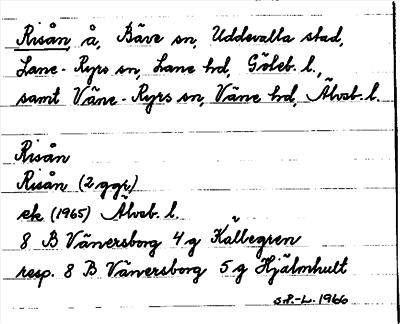 Risån å, Bäve sn, Uddevalla stad,
Lane-Ryrs sn, Lane hd, Göteb. l.,
samt Väne-Ryrs sn, Väne hd, Älvsb. l.
Risån
Risån (2 ggr)
ek (1965) Älvsb. l.
8 B Vänersborg 4 g Källegren
resp. 8 B Vänersborg 5 g Hjälmhult
S.P.-L. 1966